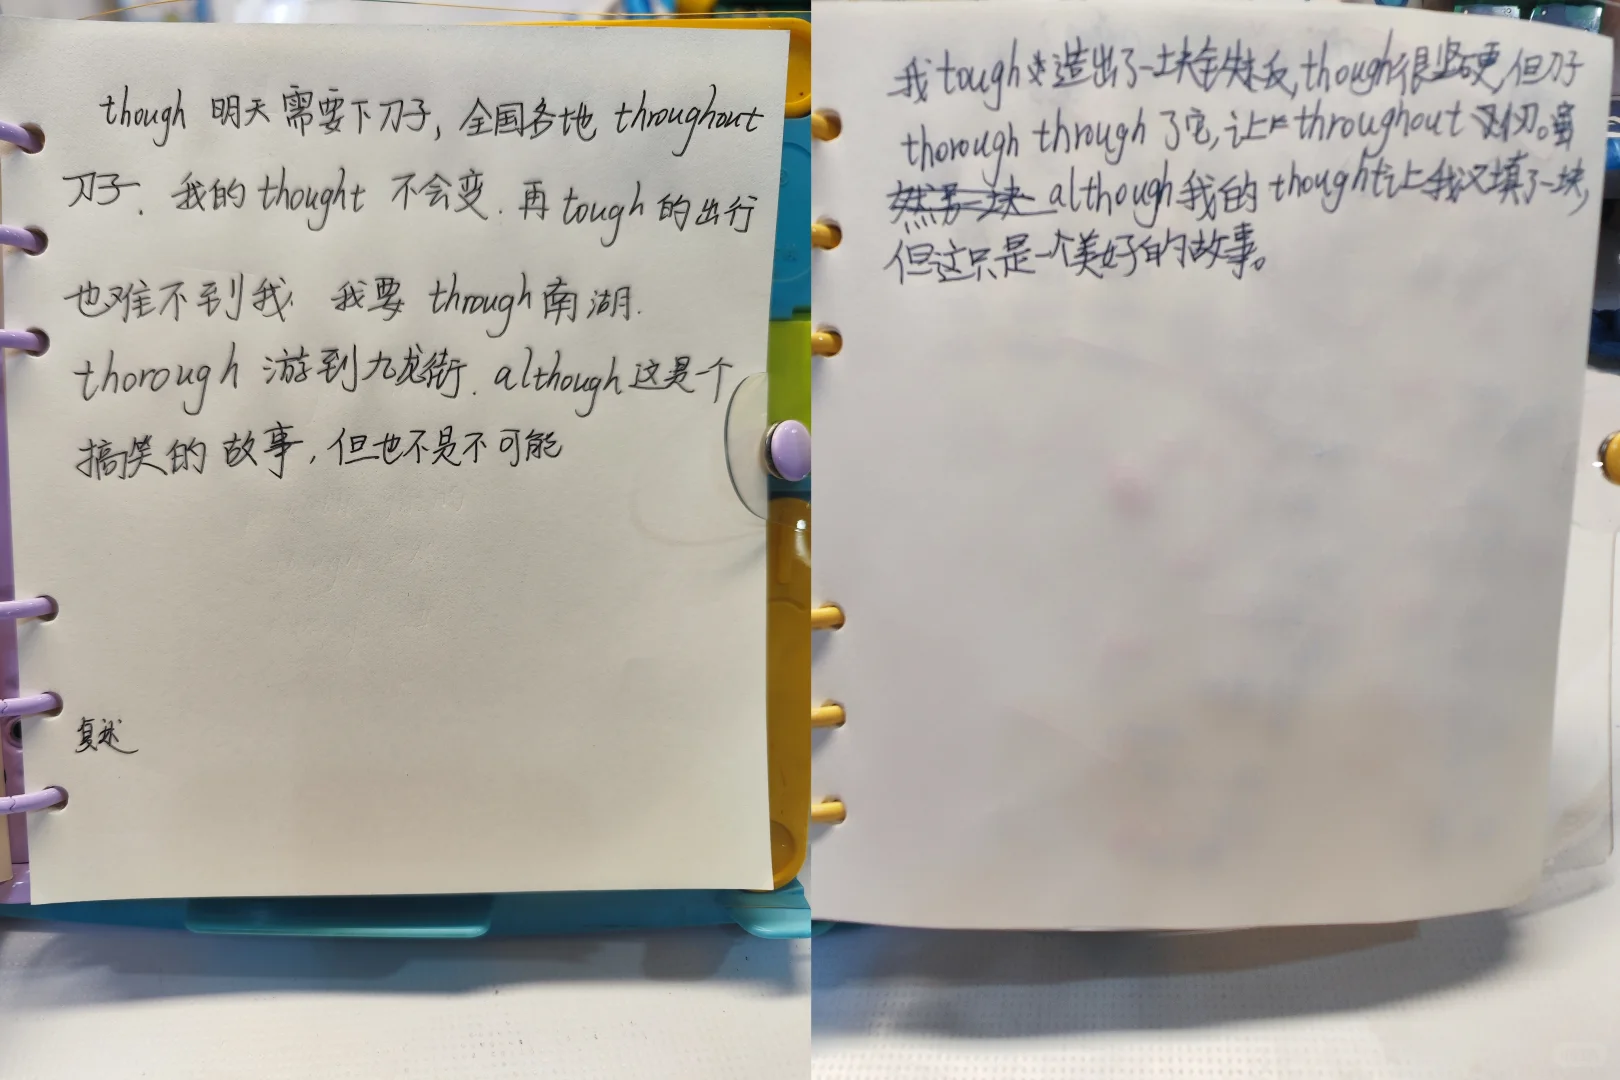 though 明天需要下刀子，全国各地 throughout
刀子．我的 thought 不会变．再 tough 的出行
也难不到我．我要 through 南湖．
thorough 游到九龙街．although 这是一个
搞笑的故事，但也不是不可能
复述
我 tough 造出了一块钢铁板，though很坚硬，但刀子
thorough through 了它，让 throughout 。
although我的 thought让我又填了一块，
但这只是一个美好的故事。